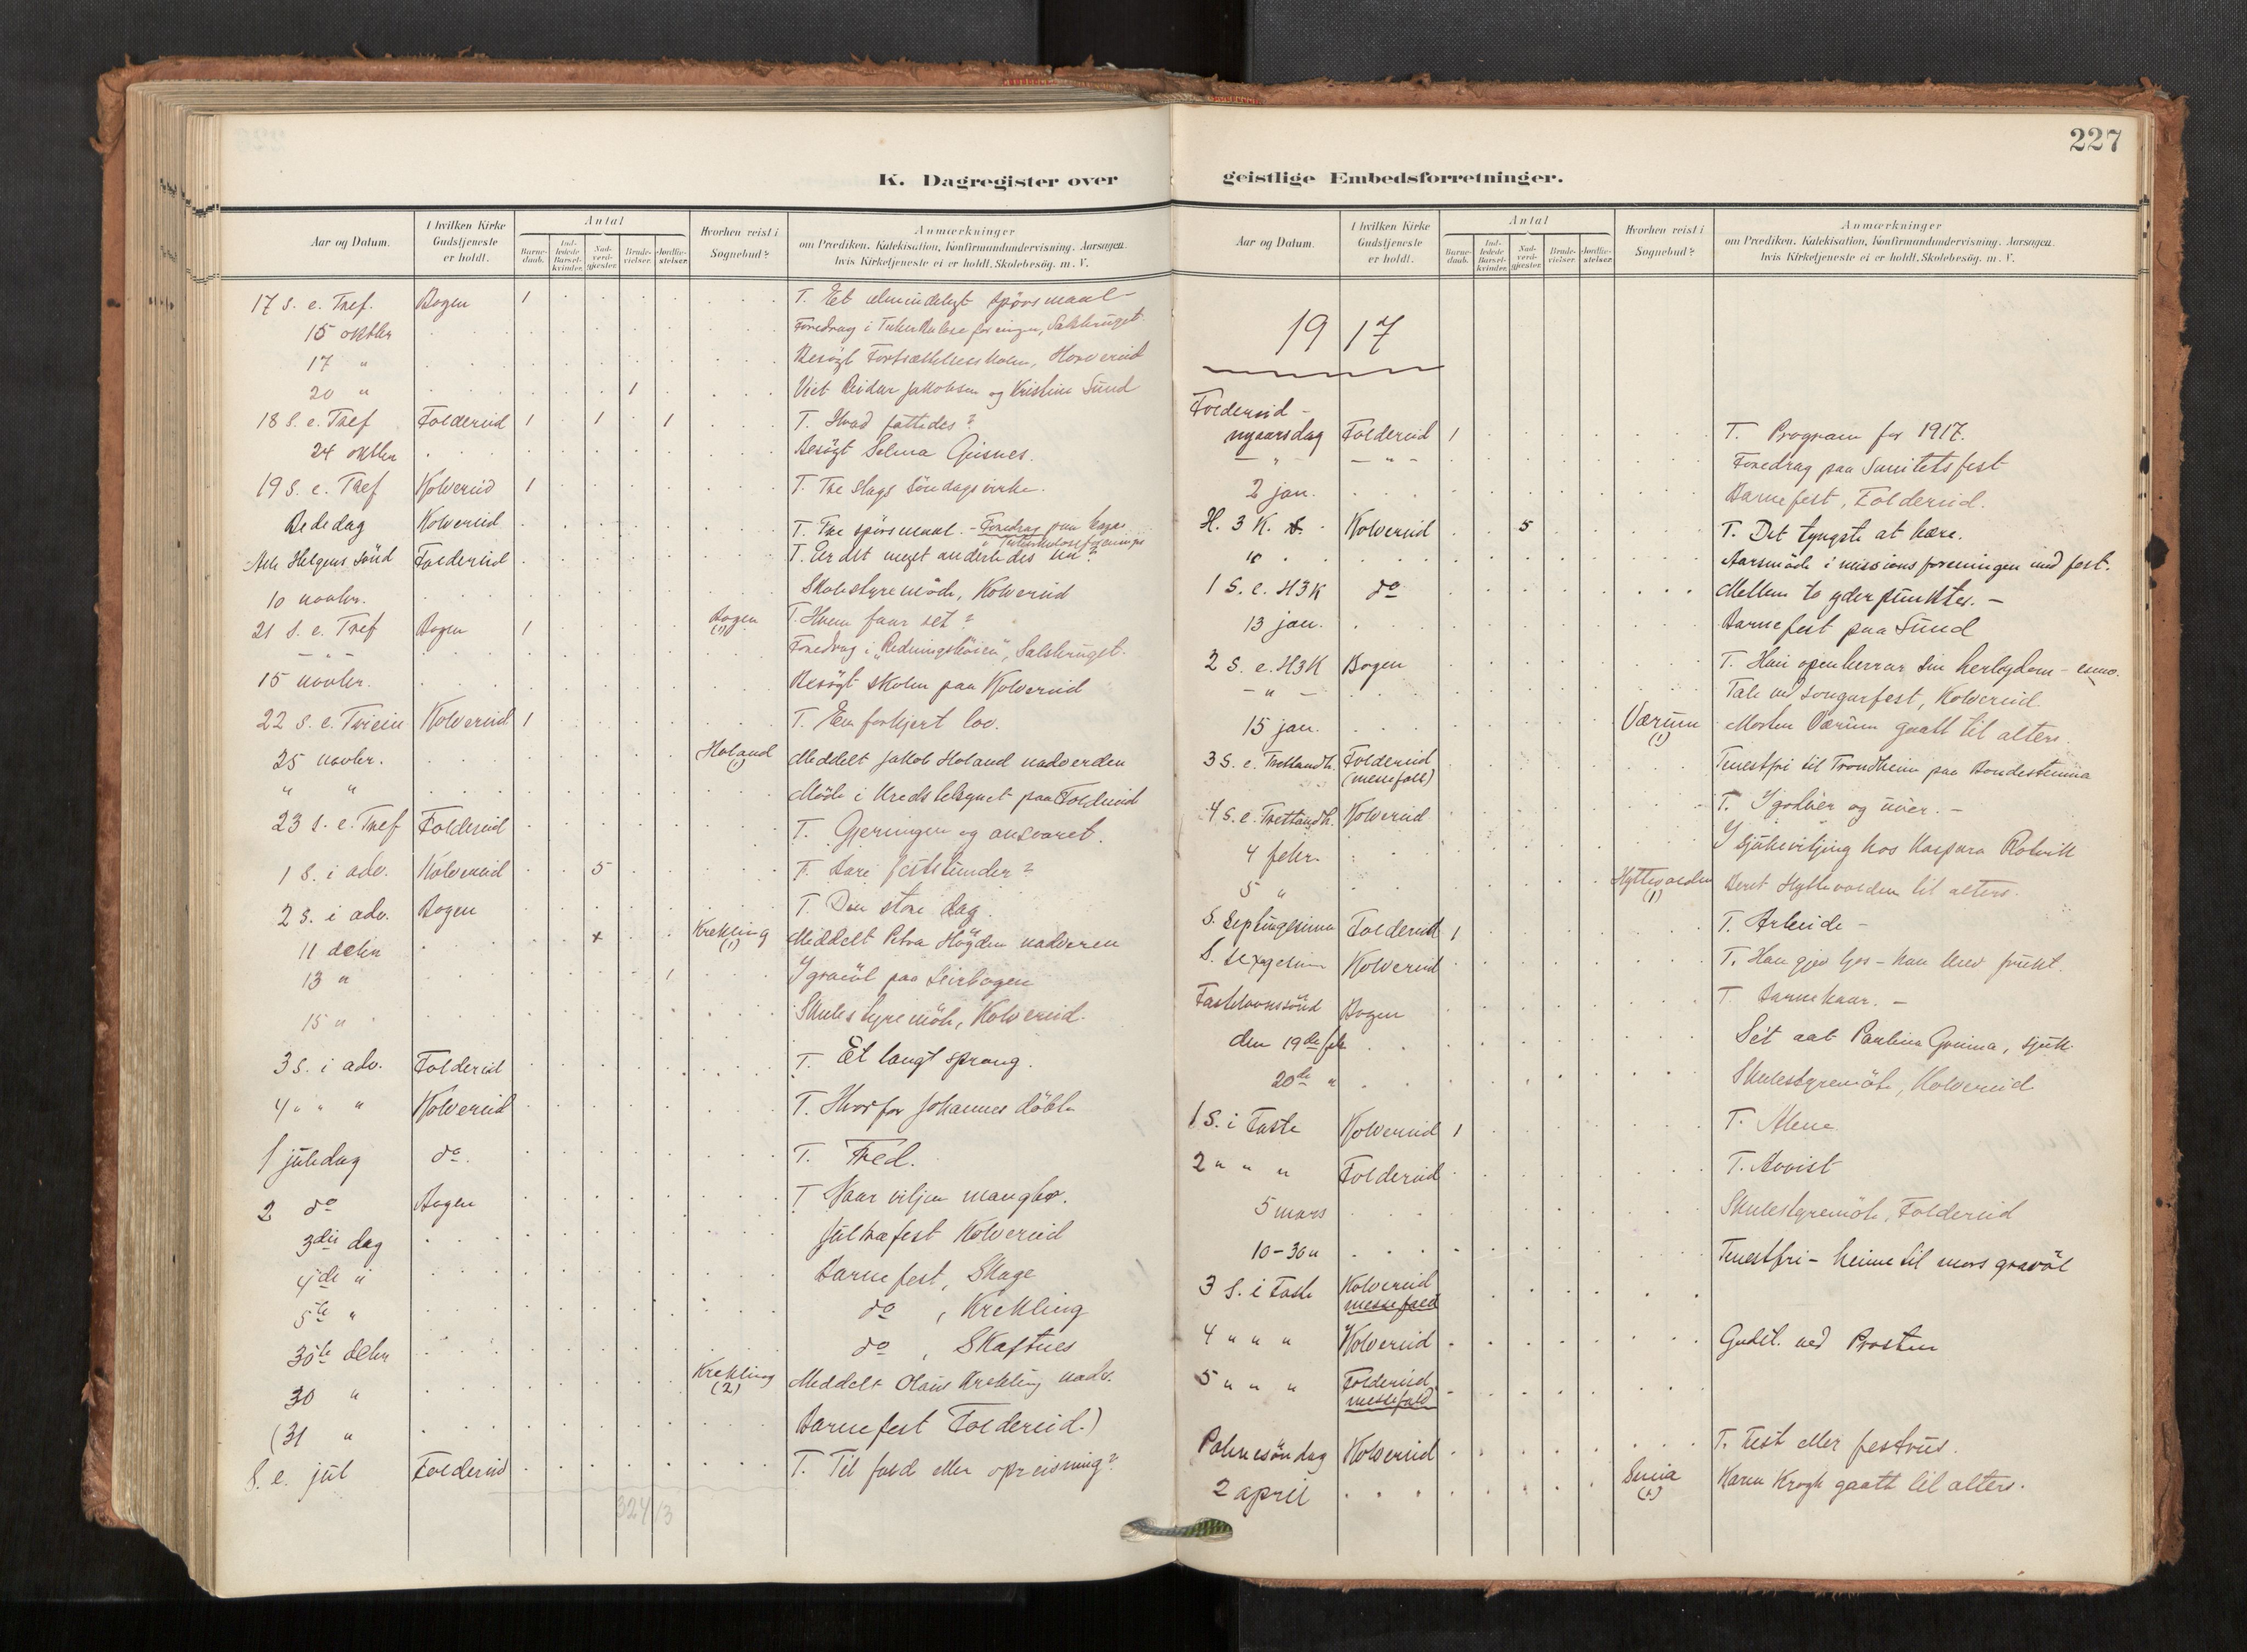 227
K. Dagregister over
geistlige Embedsforretninger.
Aar og Datum.
I hvilken Kirke Gudstjeneste er holdt.
Antal
Barnedaab.
Indledede Barselkvinder.
Nadverdgjester.
Brudevielser.
Jordfæstelser.
Hvorhen reist i Sognebud?
Anmærkninger
om Prædiken, Katekisation, Konfirmandundervisning. Aarsagen
hvis Kirketjeneste ei er holdt. Skolebesøg. m. V.
17 S. e. Tref. Bogen 1 T. Et almindeligt spörsmaal
15 oktbr Foredrag i Tuberkulose foreningen, Salsbruget.
17 " Besögt Fortsættelsesskolen,
20 " 1 Viet Reidar Jakobsen og Kristine Sund
18 S. e. Tref Foldereid 1 1 1 T. Hvad fattedes?
24 oktbr Besögt Selma
19 S. e. Tref Kolvereid 1 T. Tre slags söndagsvirke.
Bededag Kolvereid T. Tre spörsmaal. - Foredrag paa
Alle Helgens sönd Foldereid T. Er det meget anderledes nu?
10 novbr. Skolestyremöde, Kolvereid
21 S. e. Tref Bogen 1 Bogen (1) T. Hvem faar set?
- " - Foredrag i "Redningsköien", Salsbruget.
15 novbr. Besögt skolen paa Kolvereid
22 S. e. Kolvereid 1 T. En forkjert lov.
25 novbr. Holand (1) Meddelt Jakob Holand nadverden
" " Möde i Kredstelsynet paa Foldereid
23 S. e. Tref Foldereid T. Gjerningen og ansvaret.
1 S. i adv. Kolvereid 5 T. Bare feststunder?
2 S. i adv. Bogen T. Den store dag.
11 decbr + Krekling (1) Meddelt Petra Högden nadveren
13 " 1 I gravöl paa Leirbogen
15 " Skulestyremöte, Kolvereid.
3 S. i adv. Foldereid T. Et langt sprang.
4 " " " Kolvereid T. Hvorfor Johannes döbte
1 juledag do. T. Fred.
2 do Bogen T Naar viljen mangler.
3die dag Jultræfest Kolvereid
4de " Barnefest, Skage
5te " do , Krekling
30te decbr do , Skaftnes
30 " Krekling (2) Meddelt Olaus Krekling nadv.
(31 " Barnefest Foldereid.)
S. e. jul Foldereid T. Til fald eller opreisning?
324/3
Aar og Datum.
I hvilken Kirke Gudstjeneste er holdt.
Antal
Barnedaab.
Indledede Barselkvinder.
Nadverdgjester.
Brudevielser.
Jordfæstelser.
Hvorhen reist i Sognebud?
Anmærkninger
om Prædiken, Katekisation, Konfirmandundervisning. Aarsagen
hvis Kirketjeneste ei er holdt. Skolebesøg. m. V.
1917
Foldereid -
nyaarsdag Foldereid 1 T. Program for 1917.
- " - - " - Foredrag paa Sanitetsfest
2 jan. Barnefest, Foldereid.
H. 3 K. Kolvereid 5 T. Det tyngste at bære.
" Aarsmöde i missionsforeningen med fest.
1 S. e. H3K do Mellem to yderpunkter. -
13 jan. Barnefest paa Sund
2 S. e. H3K Bogen T. Han openberrar sin herlegdom - enno.
- " - Tale ved songarfest, Kolvereid.
15 jan. Værum (1) Morten Værum gaatt til alters.
3 S. e. Trettandh. Foldereid (messefall) Tenestfri til Trondheim paa Bondestemna
4 S. e. Trettandh. Kolvereid T. I godvêr og uvêr. -
4 febr. I sjukevitjing hos Kaspara Rotvik
5 " Hyttevolden (1) Beret Hyttevolden til alters.
S. Septuagesima Foldereid 1 T. Arbeide -
S. Kolvereid T. Han gjev ljos - han krev frukt.
Fastelavnssönd Bogen T. Barnekaar. -
den 19de feb Sét aat Paulina sjuk.
20de " Skulestyremöte, Kolvereid
1 S. i Faste Kolvereid 1 T. Alene
2 " " " Foldereid T. Avvist
5 mars Skulestyremöte, Foldereid
10-30 " Tenestfri - heime til mors gravöl
3 S. i Faste Kolvereid messefald
4 " " " Kolvereid Gudst. ved Prosten
5 " " " Foldereid messefald
Palmesöndag Kolvereid T. Fest eller
2 april (1) Karen Krogh gaatt til alters.